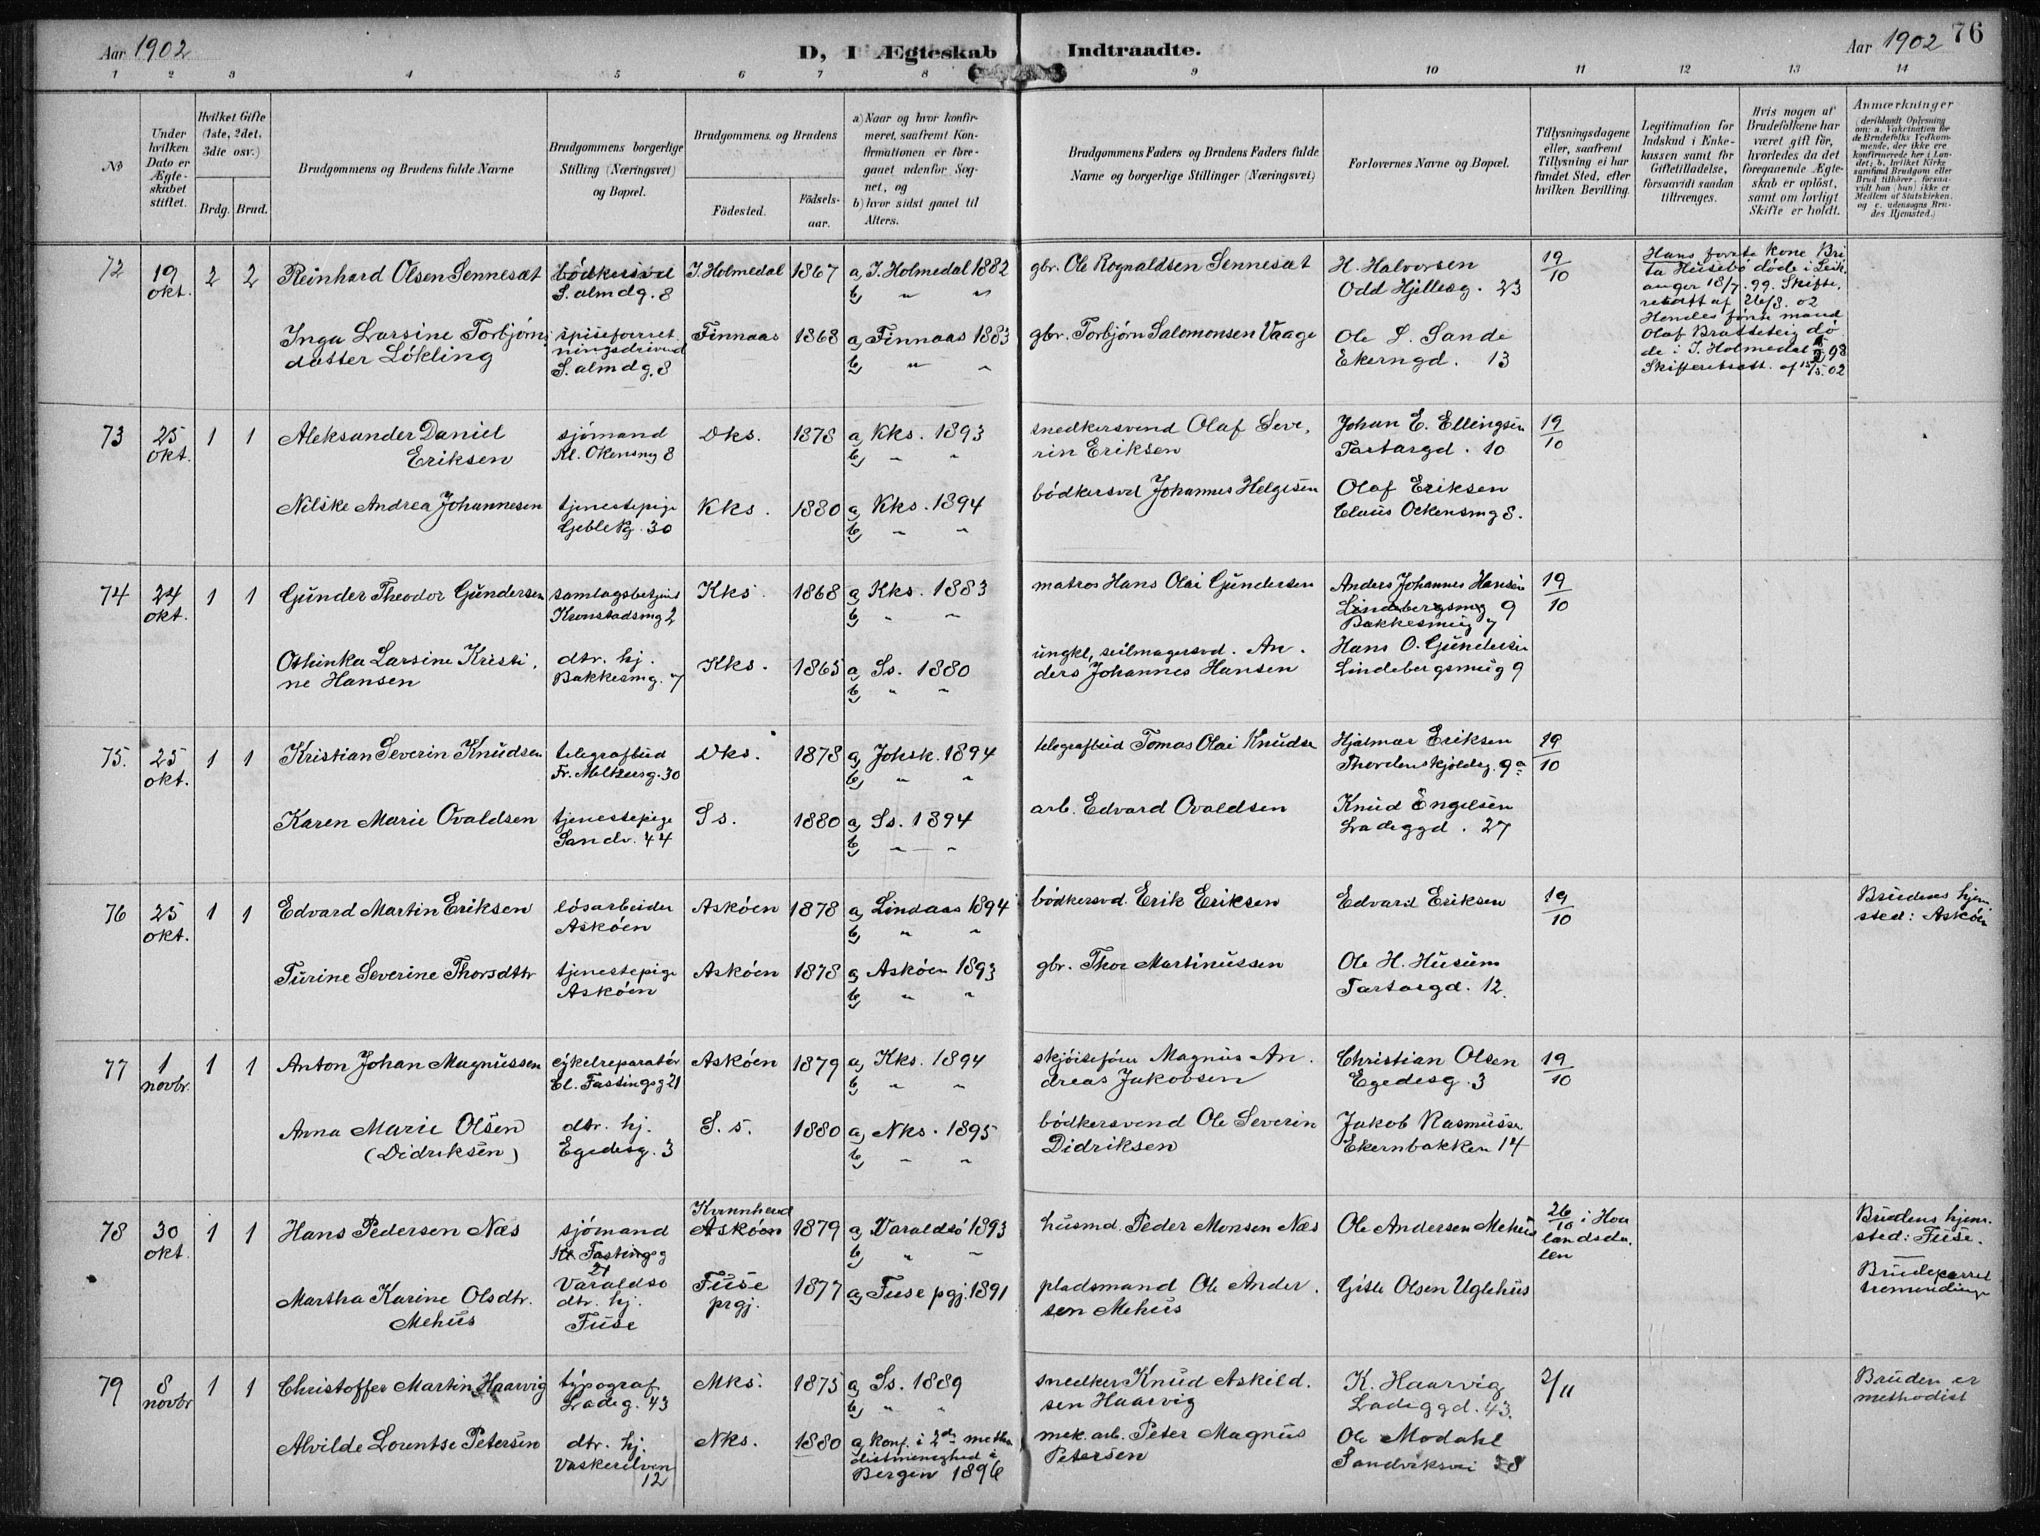 Aar 1902
D, I Ægteskab Indtraadte.
Aar 1902 76
1 2 3 4 5 6 7 8 9 10 11 12 13 14
No
Under hvilken Dato er Ægteskabet stiftet.
Hvilket Gifte (1ste, 2det, 3die osv.)
Brdg. Brud.
Brudgommens og Brudens fulde Navne
Brudgommens borgerlige Stilling (Næringsvei) og Bopæl.
Brudgommens og Brudens
Fødested. Fødselsaar.
a) Naar og hvor konfirmeret, saafremt Konfirmationen er foregaaet udenfor Sognet, og
b) hvor sidst gaaet til Alters.
Brudgommens Faders og Brudens Faders fulde Navne og borgerlige Stillinger (Næringsvei)
Forlovernes Navne og Bopæl.
Tillysningsdagene eller, saafremt Tillysning ei har fundet Sted, efter hvilken Bevilling.
Legitimation for Indskud i Enkekassen samt for Giftetilladelse, forsaavidt saadan tiltrænges.
Hvis nogen af Brudefolkene har været gift før, hvorledes da det foregaaende Ægteskab er opløst, samt om lovligt Skifte er holdt.
Anmærkninger (deriblandt Oplysning om: a. Vakcination for de Brudefolks Vedkommende, der ikke ere konfirmerede her i Landet; b. hvilket Kirkesamfund Brudgom eller Brud tilhører, forsaavidt han (hun) ikke er Medlem af Statskirken, og c. udensogns Brudes Hjemsted.)
72 19 okt. 2 2 Reinhard Olsen Sennesæt
bødkersvd S. almdg. 8
I. Holmedal 1867 a, I. Holmedal 1882
b, " "
gbr. Ole Rognaldsen Sennesæt
H. Halvorsen
Odd Hjellesg. 23
19/10
Hans forrte kone Bri
ta Husebø døde i Leik
anger 18/7. 99. Skifte,
retsatt af 26/8. 02
Hendes førn mand
Olaf Bratteteig dø
de i I. Holmedal 98
Skifteretsatt. af 15/5. 02
Inga Larsine Torbjøns
datter Løkling
spiseforret
ningsdrivend
S. almdg. 8
Finnaas 1868 a, Finnaas 1883
b, " "
gbr. Torbjørn Salomonsen Vaage
Ole S. Sande
Ekerngd. 13
73 25 okt. 1 1 Aleksander Daniel
Eriksen
sjømand
Kl. Okensmg 8
Dks. 1878 a, Kks. 1893
b, " "
snedkersvend Olaf Seve,
rin Eriksen
Johan E. Ellingsen
Tartargd. 10
19/10
Nilske Andrea Johannesen
tjenestepige
Geblekg. 30
Kks. 1880 a, Kks. 1894
b, " "
bødkersvd Johannes Helgesen
Olaf Eriksen
Claus Ockensmg 8.
74 24 okt. 1 1 Gunder Theodor Gundersen
samlagsbetjent
Kronstadsmg 2
Kks. 1868 a, Kks. 1883
b, " "
matros Hans Olai Gundersen
Anders Johannes Hansen
Lindebergsmg 9
Bakkesmug 7
19/10
Othinka Larsine Kristi,
ne Hansen
dtr. hj.
Bakkesmg. 7
Kks. 1865 a, Ss. 1880
b, " "
ungkl, seilmagersvd. An.
ders Johannes Hansen
Hans O. Gundersen
Lindebergsmug 9
75. 25 okt. 1 1 Kristian Severin Knudsen
telegrafbud
Fr. Meltzersg. 30
Dks. 1878 a, Johsk. 1894
b, " "
telegrafbud Tomas Olai Knudse
Hjalmar Eriksen
Thordenskjoldsg. 9a
19/10
Karen Marie Ovaldsen
tjenestepige
Sandv. 44
Ss. 1880 a, Ss. 1894
b, " "
arb. Edvard Ovaldsen
Knud Engelsen
Ladeggd. 27
76 25 okt. 1 1 Edvard Martin Eriksen
løsarbeider
Askøen
Askøen 1878 a, Lindaas 1894
b, " "
bødkersvd. Erik Eriksen
Edvard Eriksen
19/10
Brudens hjem
sted: Askøen
Turine Severine Thorsdtr
tjenestepige
Askøen
Askøen 1878 a, Askøen 1893
b, " "
gbr. Thor Martinussen
Ole H. Husum
Tartargd. 12.
77 1 novbr. 1 1 Anton Johan Magnussen
cykelreparatør
Cl. Fastingsg 21
Askøen 1879 a, Kks. 1894
b, " "
skjøiseforer Magnus An.
dreas Jakobsen
Christian Olsen
Egedesg. 3
19/10
Anna Marie Olsen
(Didriksen)
dtr. hj.
Egedesg. 3
S. s. 1880 a, Nks. 1895
b, " "
bødkersvend Ole Severin
Didriksen
Jakob Rasmusse
Ekernbakken 14
78 30 okt. 1 1 Hans Pedersen Næs
sjømand
Kl Fastingsg
21
Varaldsø
Kvinnherad
Askøen 1879 a, Varaldsø 1893
b, " "
husmd. Peder Monsen Næs
Ole Andersen Mehus
26/10 i Hoa
landsda.
len
Brudens hjem.
sted: Fuse.
Brudeparret
tremendinge
Martha Karine Olsdtr.
Mehus
dtr. hj.
Fuse
Fuse
prgj. 1877 a, Fuse pgj. 1891
pladsmand Ole Ander.
sen Mehus
Gitle Olsen Uglehus
79 8 novbr 1 1 Christoffer Martin Haarvig
typograf
Ladeg. 43
Mks. 1875 a, Ss. 1889
b, " "
snedker Knud Askild.
sen Haarvig
K. Haarvig
Ladeggd. 43.
2/11
Bruden er
methodist
Alvilde Lorentse Petersen
dtr. hj.
Vaskerelven
12
Nks. 1880 a, konf. i 2den metho
distmenighed i
Bergen 1896
mek. arb. Peter Magnus
Petersen
Ole Modahl
Sandviksvei 38